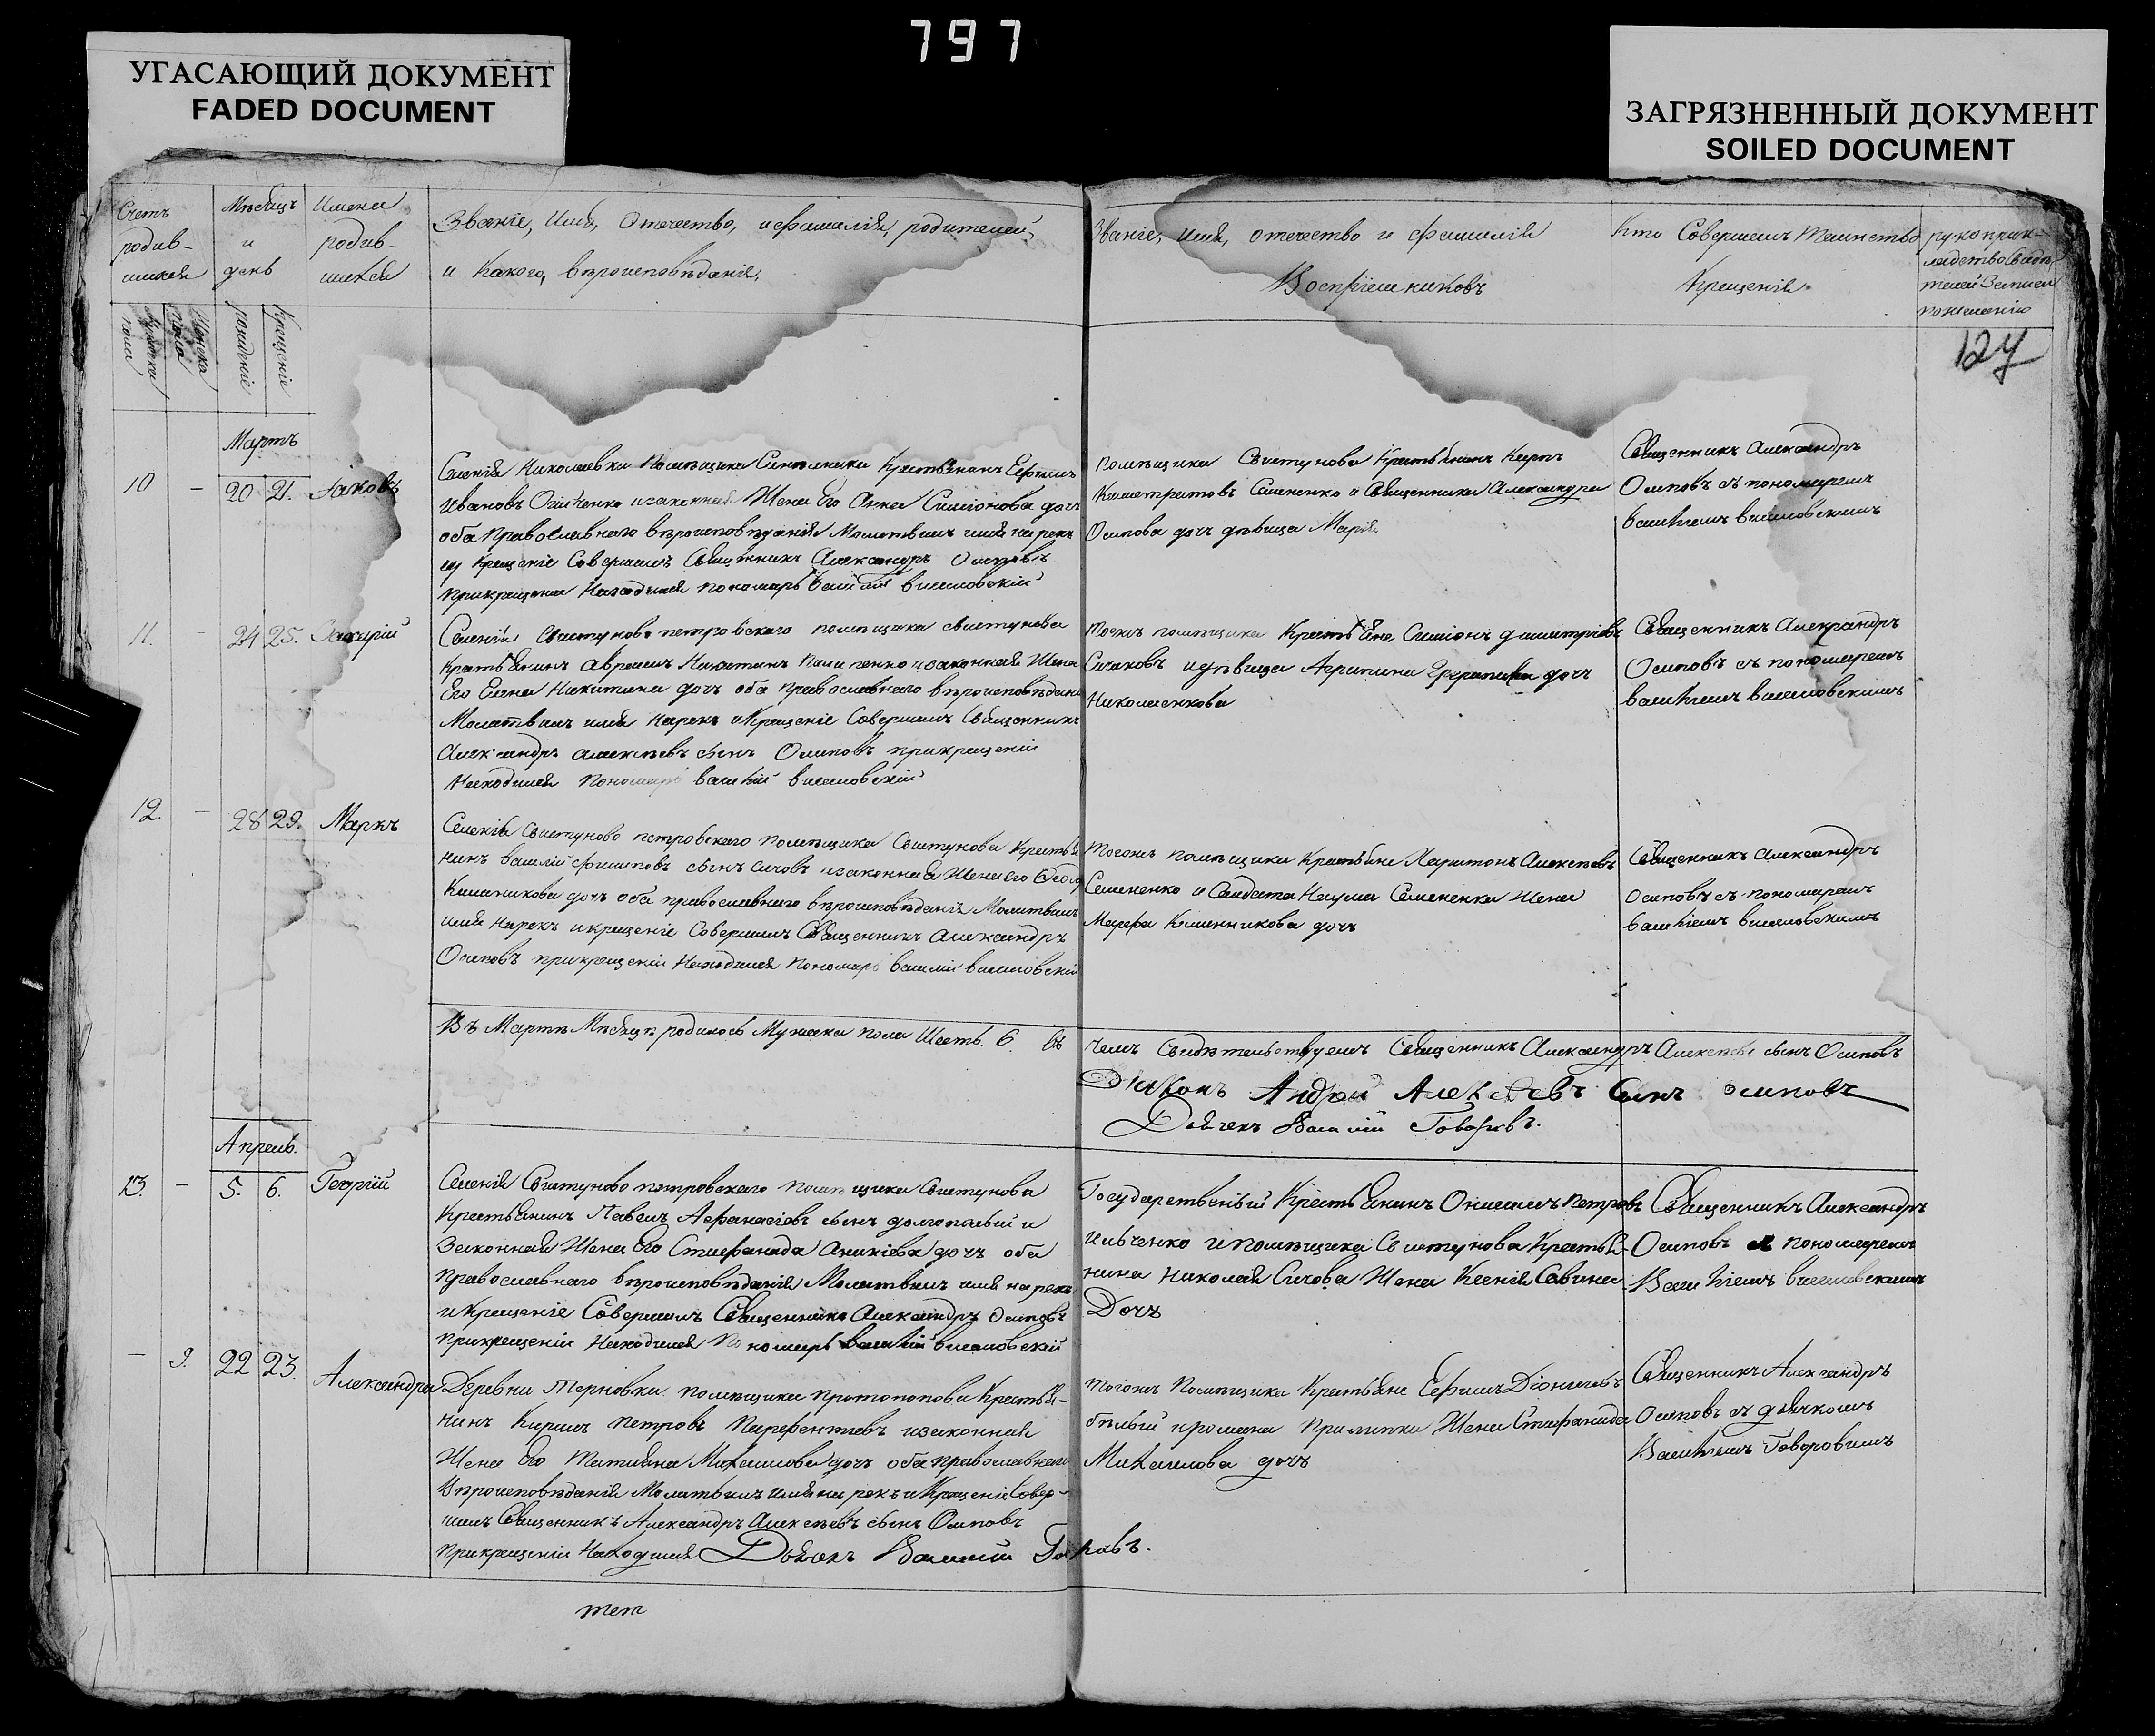 797
УГАСАЮЩИЙ ДОКУМЕНТ
FADED DOCUMENT
ЗАГРЯЗНЕННЫЙ ДОКУМЕНТ
SOILED DOCUMENT
Счетъ родив-шихся
Мѣсяцъ и день
Имена родив-шихся
Званіе, Имя, Отечество, и фамилія, родителей,
и Какого, вѣроисповѣданія,
Званіе, имя, отечество и фамилія
Воспріемниковъ
Кто Совершалъ Таинство
Крещенія
рукоприк-
ладство Свидѣ-
телей Записи
по желанію
Мужеска пола
Женска пола
рожденіе
Крещеніе
127
Мартъ
10 - 20 21. Іаковъ
Селенія Николаевки Помѣщика Крестьянинъ Ефимъ
Ивановъ и законная Жена Его Анна Симіонова дочь
оба Православнаго вѣроисповѣданія Молитвилъ имя нарекъ
и Крещеніе Совершалъ Священникъ Александръ Осиповъ
прикрещеніи Находился пономарь Василій
помѣщика Свистунова Крестьянинъ Карпъ
Семененко и Священника Александра
Осипова дочь дѣвица Марія
Священникъ Александръ
Осиповъ съ пономаремъ
Василіемъ
11. - 24 25. Захарій
Селенія Свистуново петровскаго помѣщика Свистунова
Крестьянинъ Авраамъ Никитинъ и законная Жена
Его Елена Никитина дочь оба Православнаго вѣроисповѣданія
Молитвилъ имя Нарекъ и Крещеніе Совершалъ Священникъ
Александръ Алексѣевъ сынъ Осиповъ прикрещеніи
Находился Пономарь Василій
помѣщика Крестьяне Симіонъ Димитріевъ
Сичовъ и дѣвица Агрипина дочь
Николаенкова
Священникъ Александръ
Осиповъ съ пономаремъ
Василіемъ
12. - 28 29. Маркъ
Селенія Свистуново петровскаго Помѣщика Свистунова Крестья
нинъ Василій Филиповъ сынъ Сичовъ и законная Жена его
дочь оба православнаго вѣроисповѣданія Молитвилъ
имя Нарекъ и крещеніе Совершалъ Священникъ Александръ
Осиповъ прикрещеніи Находился Пономарь Василій
Тогожъ помѣщика Крестьяне Харитонъ Алексѣевъ
Семененко и Солдата Наума Семененка Жена
Марфа дочь
Священникъ Александръ
Осиповъ съ пономаремъ
Василіемъ
Въ Мартѣ Мѣсяцѣ родилось Мужеска пола Шесть. 6. въ
чемъ Свидѣтельствуемъ Священникъ Александръ Алексѣевъ сынъ Осиповъ
Диаконъ Андрей Алексѣевъ Сынъ Осиповъ
Дьячекъ Василій
Апрель.
13. - 5. 6. Георгій
Селенія Свистуново петровскаго помѣщика Свистунова
Крестьянинъ Павелъ Афанасіевъ сынъ и
Законная Жена Его Стефанида дочь оба
православнаго вѣроисповѣданія Молитвилъ имя нарекъ
и Крещеніе Совершалъ Священникъ Александръ Осиповъ
прикрещеніи Находился Пономарь Василій
Государственный Крестьянинъ Онисимъ Петровъ
Ильченко и помѣщика Свистунова Крестья-
нина Николая Сичова Жена Ксенія Савина
Дочь
Священникъ Александръ
Осиповъ съ пономаремъ
Василіемъ
- 9. 22 23. Александра
Деревни Терновки помѣщика протопопова Крестья-
нинъ Кирилъ Петровъ Парфентіевъ изаконная
Жена Его Татіяна Михайлова дочь оба православнаго
Вѣроисповѣданія Молитвилъ имя нарекъ и Крещеніе Совер-
шалъ Священникъ Александръ Алексѣевъ сынъ Осиповъ
прикрещеніи Находился Дьячокъ Василій
тогожъ Помѣщика Крестьяне Ефимъ Діонисіевъ
Жена Стефанида
Михайлова дочь
Священникъ Александръ
Осиповъ съ дьячкомъ
Василіемъ Говоровымъ